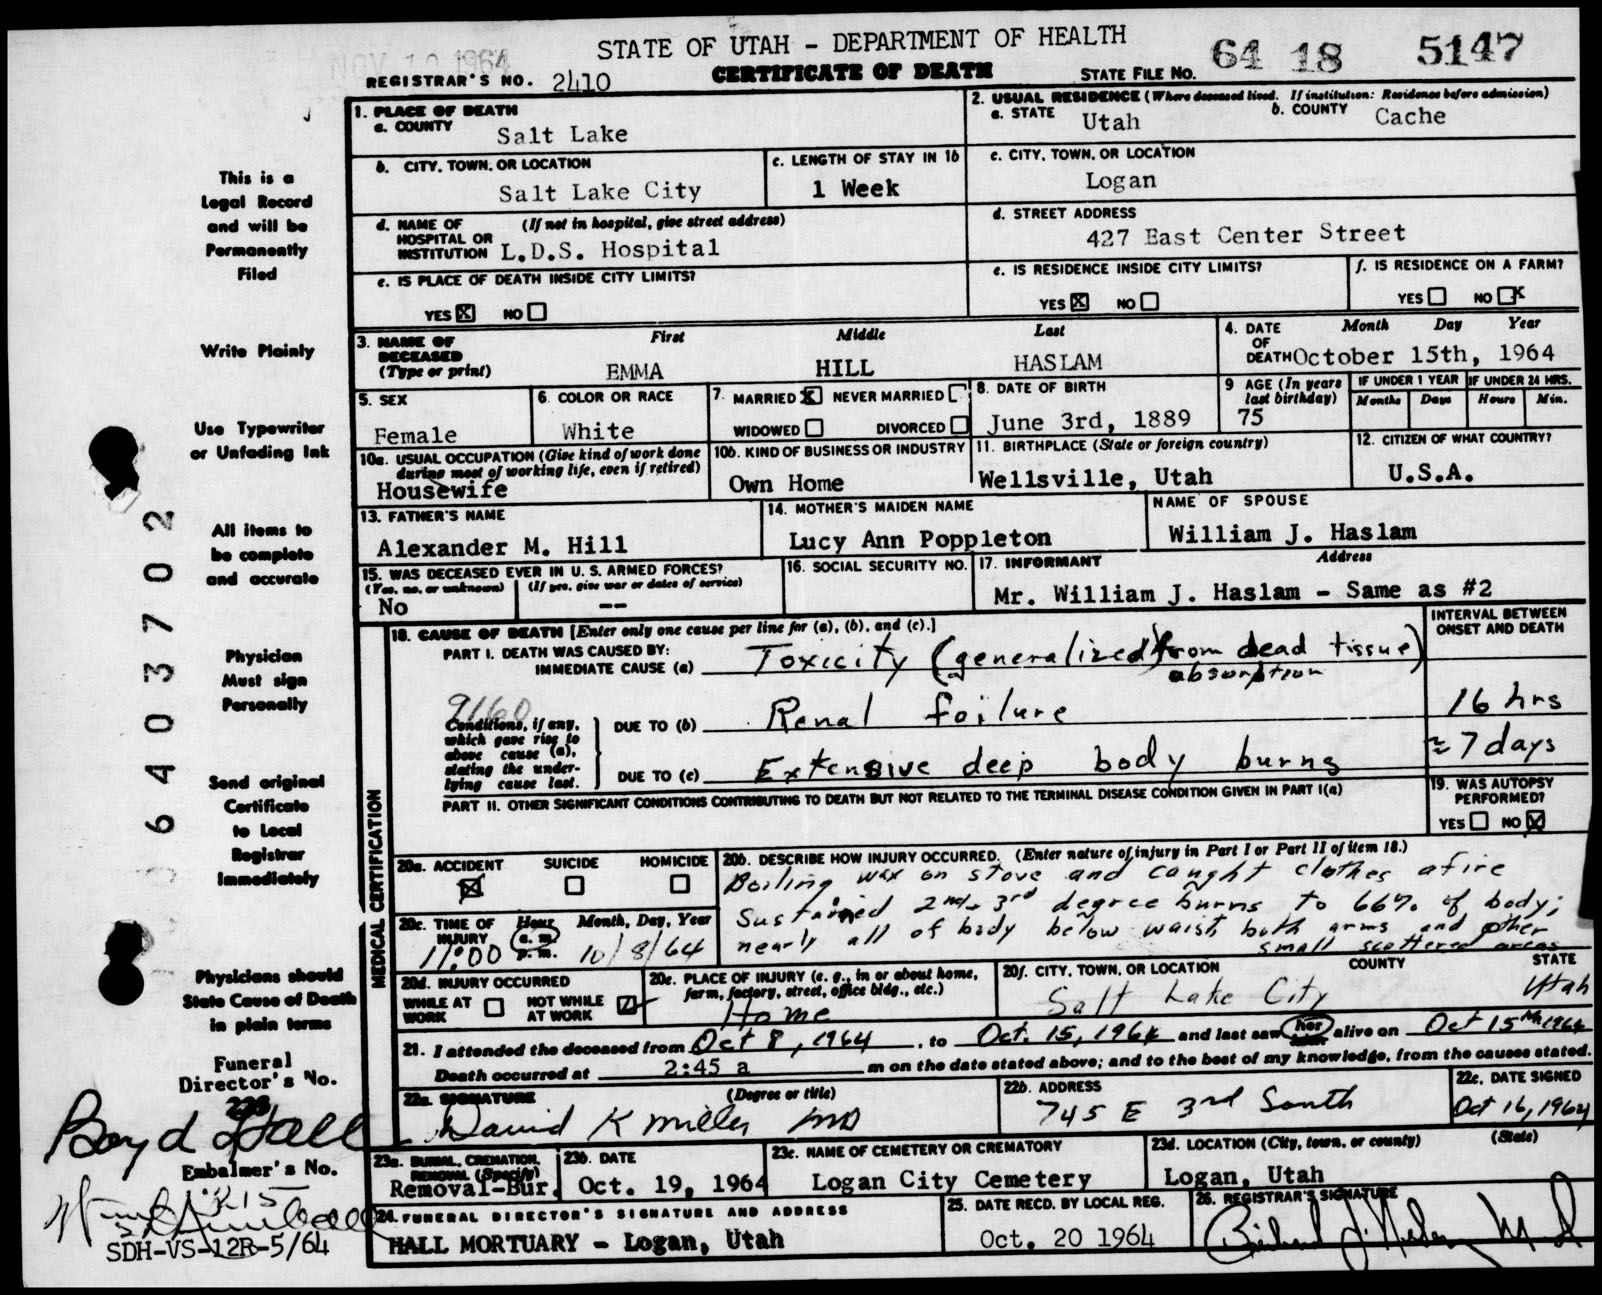 NOV 10 1964
STATE OF UTAH - DEPARTMENT OF HEALTH
64 18 5147
REGISTRAR'S NO. 2410
CERTIFICATE OF DEATH
STATE FILE NO.
1. PLACE OF DEATH
a. COUNTY
Salt Lake
2. USUAL RESIDENCE (Where deceased lived. If institution: Residence before admission)
a. STATE
Utah
b. COUNTY
Cache
b. CITY, TOWN, OR LOCATION
Salt Lake City
c. LENGTH OF STAY IN 1b
1 Week
c. CITY, TOWN, OR LOCATION
Logan
d. NAME OF HOSPITAL OR INSTITUTION
(If not in hospital, give street address)
L.D.S. Hospital
d. STREET ADDRESS
427 East Center Street
e. IS PLACE OF DEATH INSIDE CITY LIMITS?
YES X NO
e. IS RESIDENCE INSIDE CITY LIMITS?
YES X NO
f. IS RESIDENCE ON A FARM?
YES NO X
3. NAME OF DECEASED
(Type or print)
First Middle Last
EMMA HILL HASLAM
4. DATE OF DEATH
Month Day Year
October 15th, 1964
5. SEX
Female
6. COLOR OR RACE
White
7. MARRIED X NEVER MARRIED
WIDOWED DIVORCED
8. DATE OF BIRTH
June 3rd, 1889
9 AGE (In years last birthday)
75
IF UNDER 1 YEAR
Months Days
IF UNDER 24 HRS.
Hours Min.
10a. USUAL OCCUPATION (Give kind of work done during most of working life, even if retired)
Housewife
10b. KIND OF BUSINESS OR INDUSTRY
Own Home
11. BIRTHPLACE (State or foreign country)
Wellsville, Utah
12. CITIZEN OF WHAT COUNTRY?
U.S.A.
13. FATHER'S NAME
Alexander M. Hill
14. MOTHER'S MAIDEN NAME
Lucy Ann Poppleton
NAME OF SPOUSE
William J. Haslam
15. WAS DECEASED EVER IN U. S. ARMED FORCES?
(Yes, no, or unknown) (If yes, give war or dates of service)
No --
16. SOCIAL SECURITY NO.
17. INFORMANT Address
Mr. William J. Haslam - Same as #2
MEDICAL CERTIFICATION
18. CAUSE OF DEATH [Enter only one cause per line for (a), (b), and (c).]
INTERVAL BETWEEN ONSET AND DEATH
PART I. DEATH WAS CAUSED BY:
IMMEDIATE CAUSE (a) Toxicity (generalized) from dead tissue)
absorption
9160
Conditions, if any, which gave rise to above cause (a), stating the underlying cause last.
DUE TO (b) Renal failure 16 hrs
DUE TO (c) Extensive deep body burns ≈ 7 days
PART II. OTHER SIGNIFICANT CONDITIONS CONTRIBUTING TO DEATH BUT NOT RELATED TO THE TERMINAL DISEASE CONDITION GIVEN IN PART I(a)
19. WAS AUTOPSY PERFORMED?
YES NO X
20a. ACCIDENT SUICIDE HOMICIDE
X
20b. DESCRIBE HOW INJURY OCCURRED. (Enter nature of injury in Part I or Part II of item 18.)
Boiling wax on stove and caught clothes afire
Sustained 2nd + 3rd degree burns to 66% of body;
nearly all of body below waist both arms and other
small scattered areas
20c. TIME OF INJURY
Hour Month, Day, Year
11:00 a.m. p.m. 10/8/64
20d. INJURY OCCURRED
WHILE AT WORK NOT WHILE AT WORK
20e. PLACE OF INJURY (e. g., in or about home, farm, factory, street, office bldg., etc.)
Home
20f. CITY, TOWN, OR LOCATION COUNTY STATE
Salt Lake City Utah
21. I attended the deceased from Oct 8, 1964, to Oct. 15, 1964 and last saw her alive on Oct 15th 1964
Death occurred at 2:45 a m on the date stated above; and to the best of my knowledge, from the causes stated.
22a. SIGNATURE (Degree or title)
David K Miller MD
22b. ADDRESS
745 E 3rd South
22c. DATE SIGNED
Oct 16, 1964
23a. BURIAL, CREMATION, REMOVAL (Specify)
Removal-Bur.
23b. DATE
Oct. 19, 1964
23c. NAME OF CEMETERY OR CREMATORY
Logan City Cemetery
23d. LOCATION (City, town, or county) (State)
Logan, Utah
24. FUNERAL DIRECTOR'S SIGNATURE AND ADDRESS
HALL MORTUARY - Logan, Utah
25. DATE RECD. BY LOCAL REG.
Oct. 20 1964
26. REGISTRAR'S SIGNATURE
This is a
Legal Record
and will be
Permanently
Filed
Write Plainly
Use Typewriter
or Unfading Ink
All items to
be complete
and accurate
Physician
Must sign
Personally
Send original
Certificate
to Local
Registrar
Immediately
Physicians should
State Cause of Death
in plain terms
Funeral
Director's No.
Boyd Hall
Embalmer's No.
SDH-VS-12R-5/64
6403702